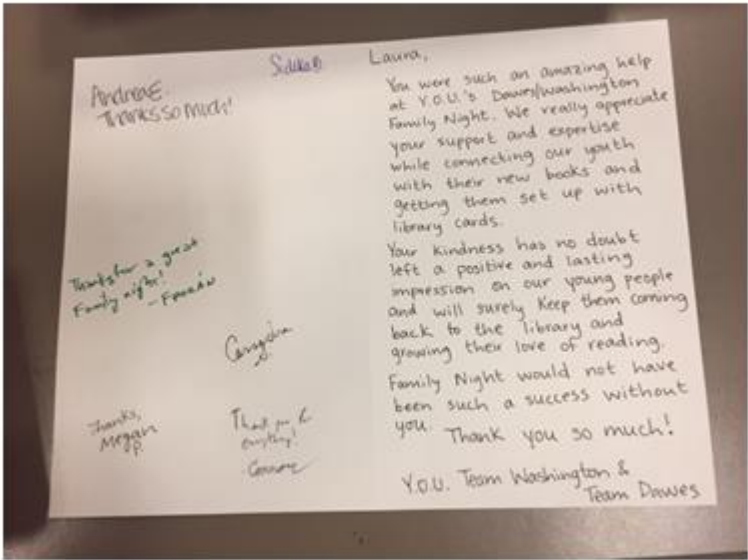 Andrea E.
Thanks so much!
Thanks for a great
Family night!
Thanks,
Megan
P.
Thank you for
everything!
Laura,
You were such an amazing help
at Y.O.U.'s Dawes/Washington
Family Night. We really appreciate
your support and expertise
while connecting our youth
with their new books and
getting them set up with
library cards.
Your kindness has no doubt
left a positive and lasting
impression on our young people
and will surely keep them coming
back to the library and
growing their love of reading.
Family Night would not have
been such a success without
you. Thank you so much!
Y.O.U. Team Washington &
Team Dawes